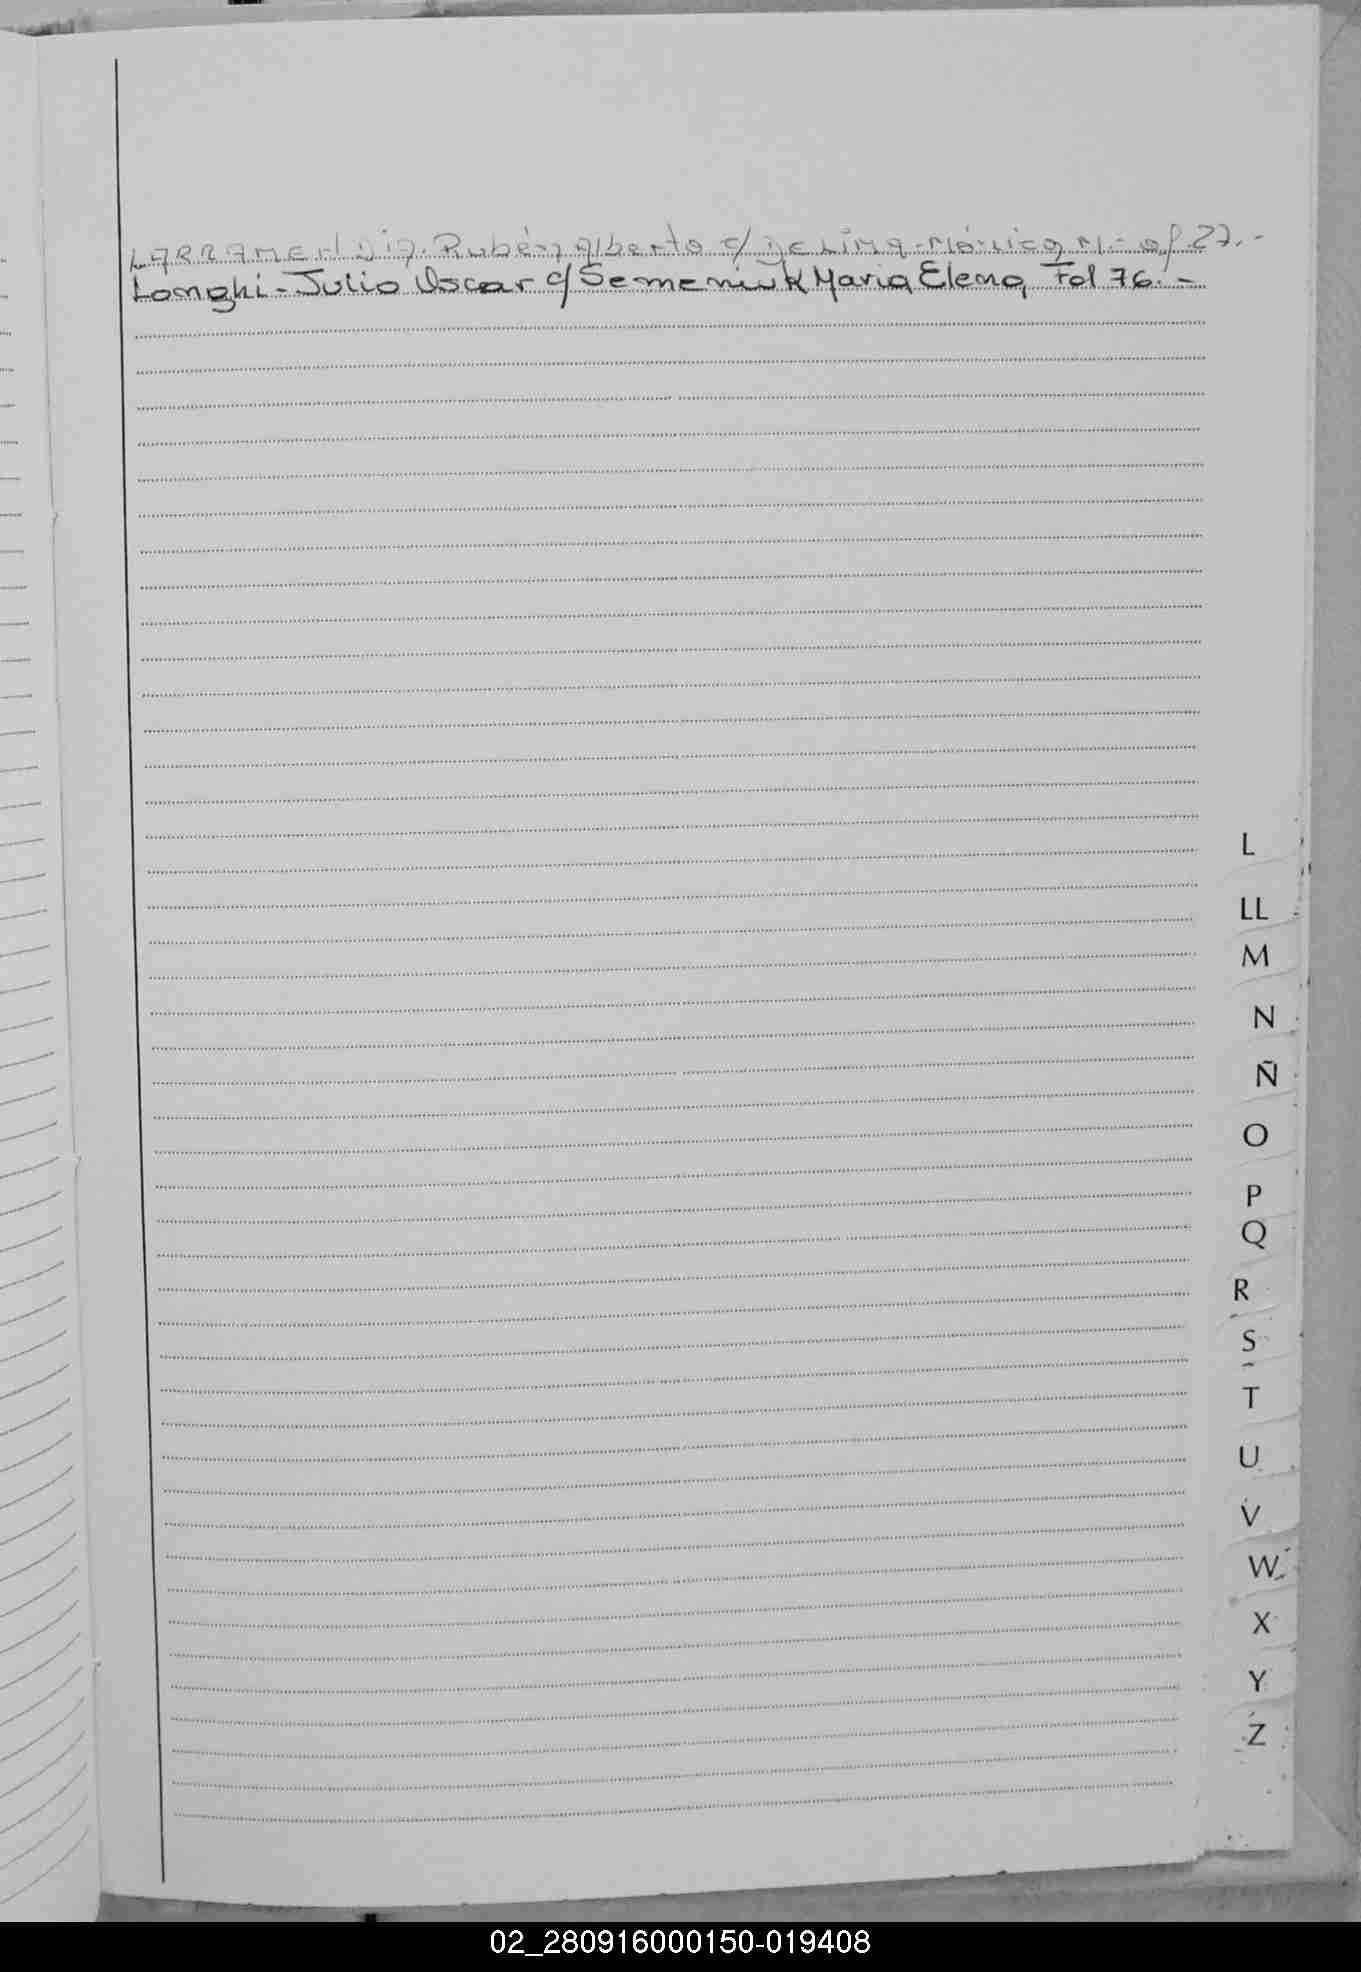 LARRAMENDIA. Rubén Alberto c/ DE LIMA. Mónica M.- a f. 27.-
Longhi - Julio Oscar c/ Semeniuk Maria Elena, Fol 76.-
L
LL
M
N
Ñ
O
P
Q
R
S
T
U
V
W
X
Y
Z
02_280916000150-019408